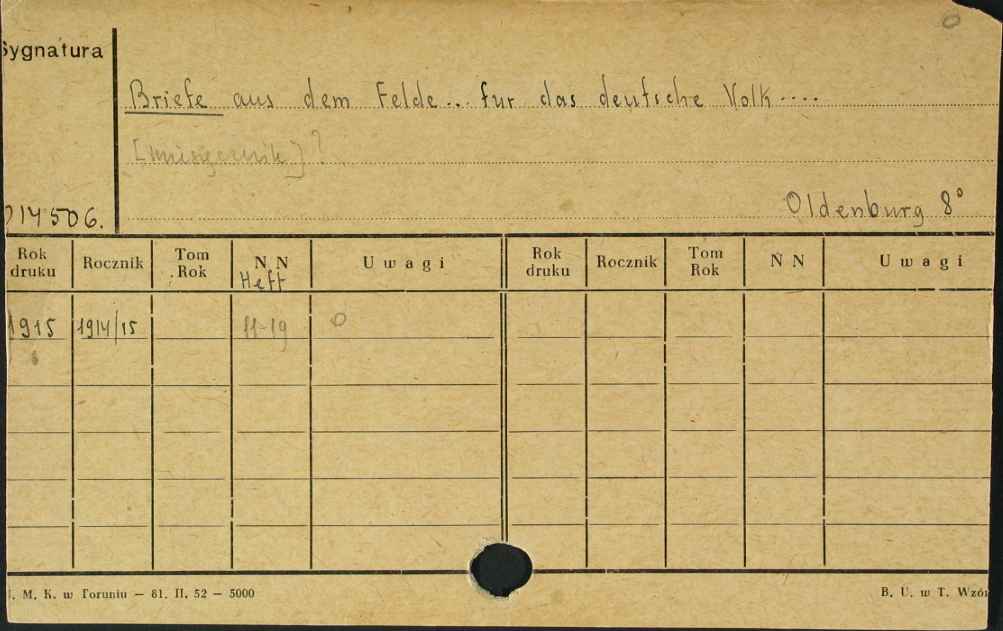 Sygnatura
Briefe aus dem Felde... fur das deutsche Volk....
[miesięcznik]?
Oldenburg 8°
014506.
Rok druku Rocznik Tom Rok N N Heft Uwagi Rok druku Rocznik Tom Rok N N Uwagi
1915 1914/15 11-19 0
M. K. w Toruniu — 61. II. 52 — 5000
B. U. w T. Wzór